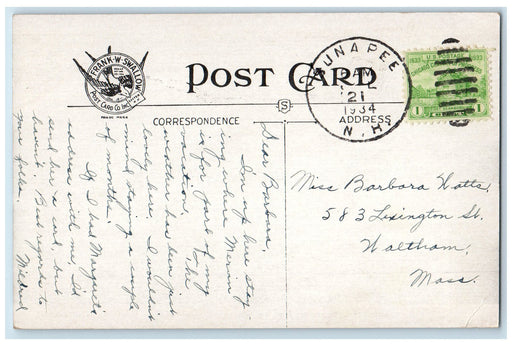 FRANK·W·SWALLOW
POST CARD Co. Inc.
TRADE MARK
POST CARD
SUNAPEE
21
1934
N.H.
U.S. POSTAGE
1933
1
1
CORRESPONDENCE
ADDRESS
S
Dear Barbara,
I'm up here stay-
ing where Marion
is for part of my
vacation. The
weather has been just
lovely here. I wouldn't
mind staying a couple
of months.
If I had Margaret's
address with me, I'd
send her a card, but
haven't. Best regards to
your folks.
Mildred
Miss Barbara Watts,
583 Lexington St.
Waltham,
Mass.